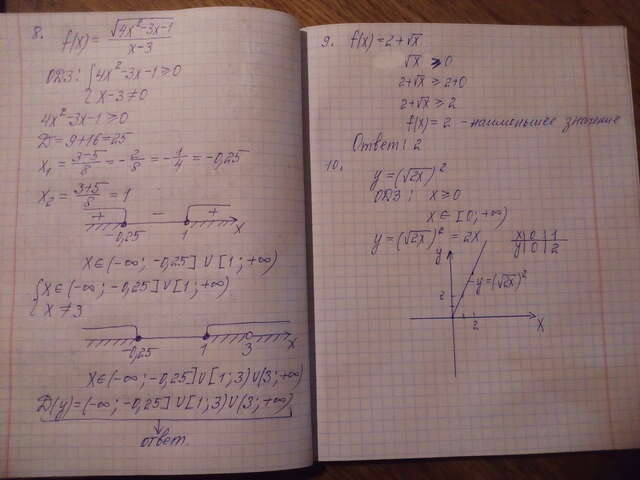 8.
f(x) = √(4x²-3x-1) / (x-3)
ОДЗ: { 4x²-3x-1 ≥ 0
{ x-3 ≠ 0
4x²-3x-1 ≥ 0
D = 9+16 = 25
x₁ = (3-5)/8 = -2/8 = -1/4 = -0,25
x₂ = (3+5)/8 = 1
+ - +
-0,25 1 x
x∈(-∞; -0,25] ∪ [1; +∞)
{ x∈(-∞; -0,25] ∪ [1; +∞)
{ x ≠ 3
-0,25 1 3 x
x∈(-∞; -0,25] ∪ [1; 3) ∪ (3; +∞)
D(y) = (-∞; -0,25] ∪ [1; 3) ∪ (3; +∞)
ответ.
9. f(x) = 2+√x
√x ≥ 0
2+√x ≥ 2+0
2+√x ≥ 2
f(x) = 2 - наименьшее значение
Ответ: 2
10.
y = (√2x)²
ОДЗ: x ≥ 0
x∈[0; +∞)
y = (√2x)² = 2x
x 0 1
y 0 2
y
y = (√2x)²
2
2
x